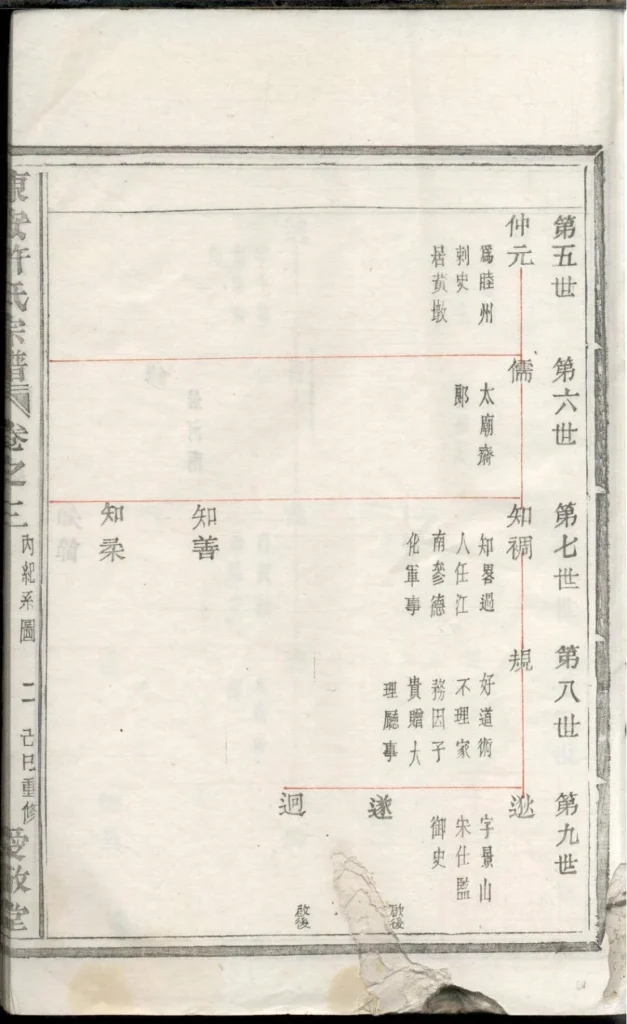 第五世
仲元
爲睦州
刺史
居黃墩
第六世
儒
太廟齋
郎
第七世
知稠
知畧過
人任江
南參德
化軍事
知善
知柔
第八世
規
好道術
不理家
務因子
貴贈大
理廳事
第九世
逖
字景山
宋仕監
御史
遂
啟後
迥
啟後
東安許氏宗譜
卷之三
內紀系圖
二
己巳重修
愛敬堂